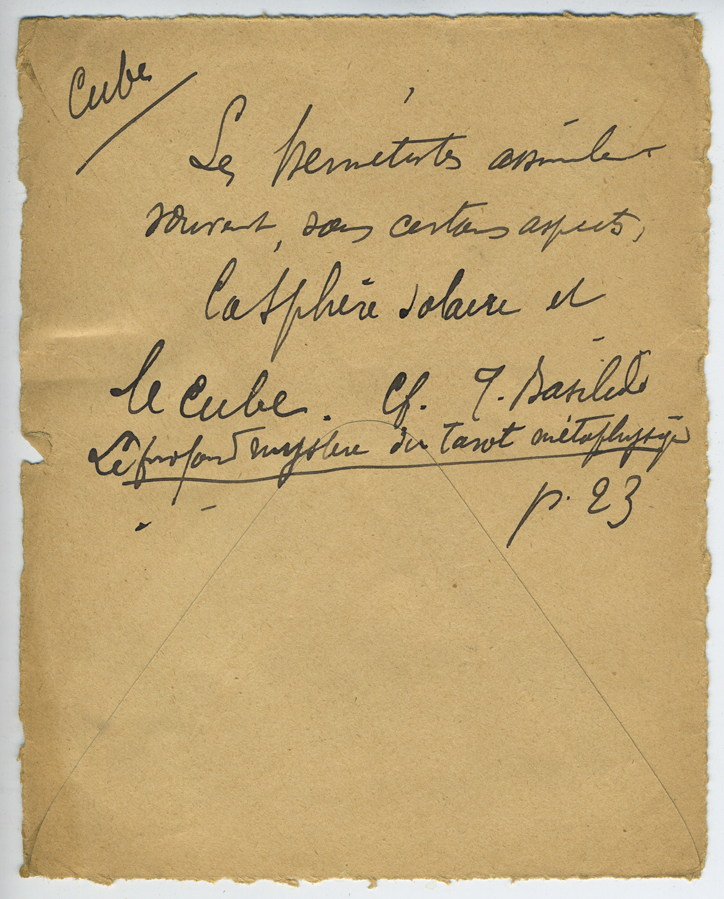 Cube
Les hermétistes assimilent
souvent, sous certains aspects,
la sphère solaire et
le cube. Cf. T. Basilide
Le profond mystère du tarot métaphysique
p. 23